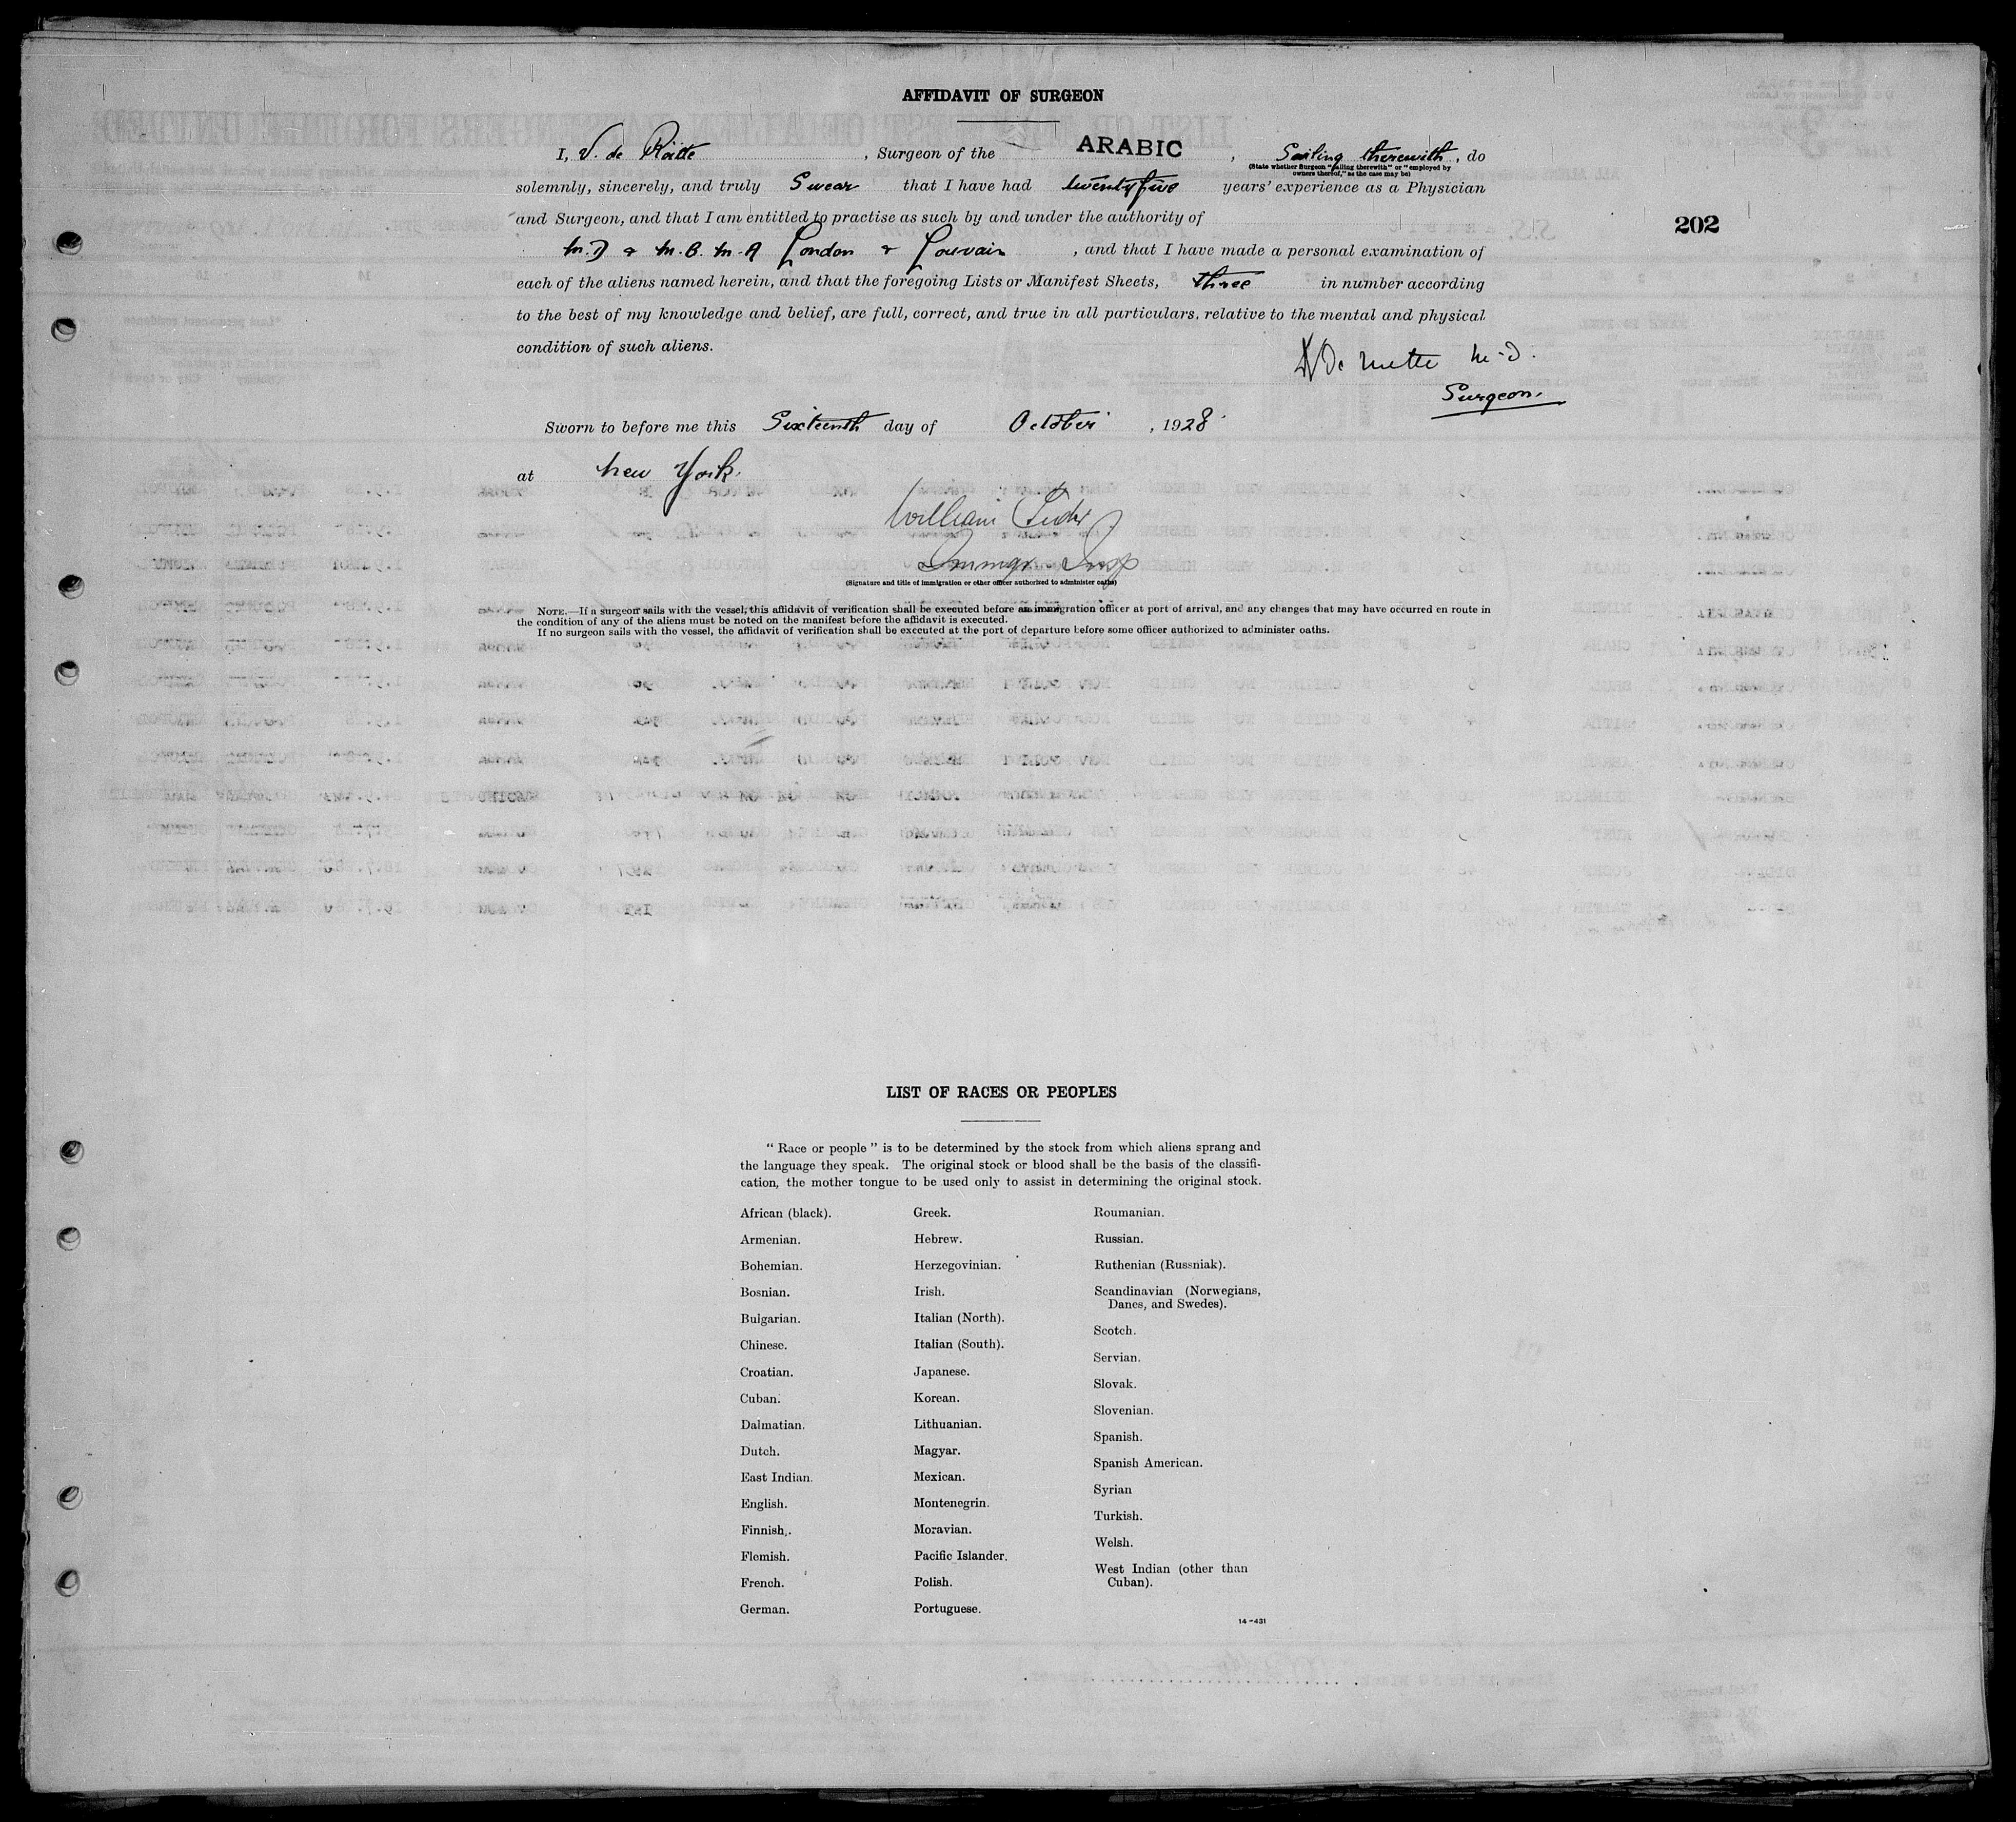 AFFIDAVIT OF SURGEON
I, V. de , Surgeon of the ARABIC , Sailing therewith , do
(State whether Surgeon "sailing therewith" or "employed by
owners thereof," as the case may be)
solemnly, sincerely, and truly Swear that I have had twenty five years' experience as a Physician
and Surgeon, and that I am entitled to practise as such by and under the authority of
202
M.D & M.B. M.A London & Louvain , and that I have made a personal examination of
each of the aliens named herein, and that the foregoing Lists or Manifest Sheets, three in number according
to the best of my knowledge and belief, are full, correct, and true in all particulars, relative to the mental and physical
condition of such aliens.
De M-D.
Surgeon.
Sworn to before me this Sixteenth day of October , 1928
at New York.
William
Immgr. Insp
(Signature and title of immigration or other officer authorized to administer oaths)
NOTE.—If a surgeon sails with the vessel, this affidavit of verification shall be executed before an immigration officer at port of arrival, and any changes that may have occurred en route in
the condition of any of the aliens must be noted on the manifest before the affidavit is executed.
If no surgeon sails with the vessel, the affidavit of verification shall be executed at the port of departure before some officer authorized to administer oaths.
LIST OF RACES OR PEOPLES
" Race or people " is to be determined by the stock from which aliens sprang and
the language they speak. The original stock or blood shall be the basis of the classifi-
cation, the mother tongue to be used only to assist in determining the original stock.
African (black).
Armenian.
Bohemian.
Bosnian.
Bulgarian.
Chinese.
Croatian.
Cuban.
Dalmatian.
Dutch.
East Indian.
English.
Finnish.
Flemish.
French.
German.
Greek.
Hebrew.
Herzegovinian.
Irish.
Italian (North).
Italian (South).
Japanese.
Korean.
Lithuanian.
Magyar.
Mexican.
Montenegrin.
Moravian.
Pacific Islander.
Polish.
Portuguese.
Roumanian.
Russian.
Ruthenian (Russniak).
Scandinavian (Norwegians,
Danes, and Swedes).
Scotch.
Servian.
Slovak.
Slovenian.
Spanish.
Spanish American.
Syrian
Turkish.
Welsh.
West Indian (other than
Cuban).
14-431